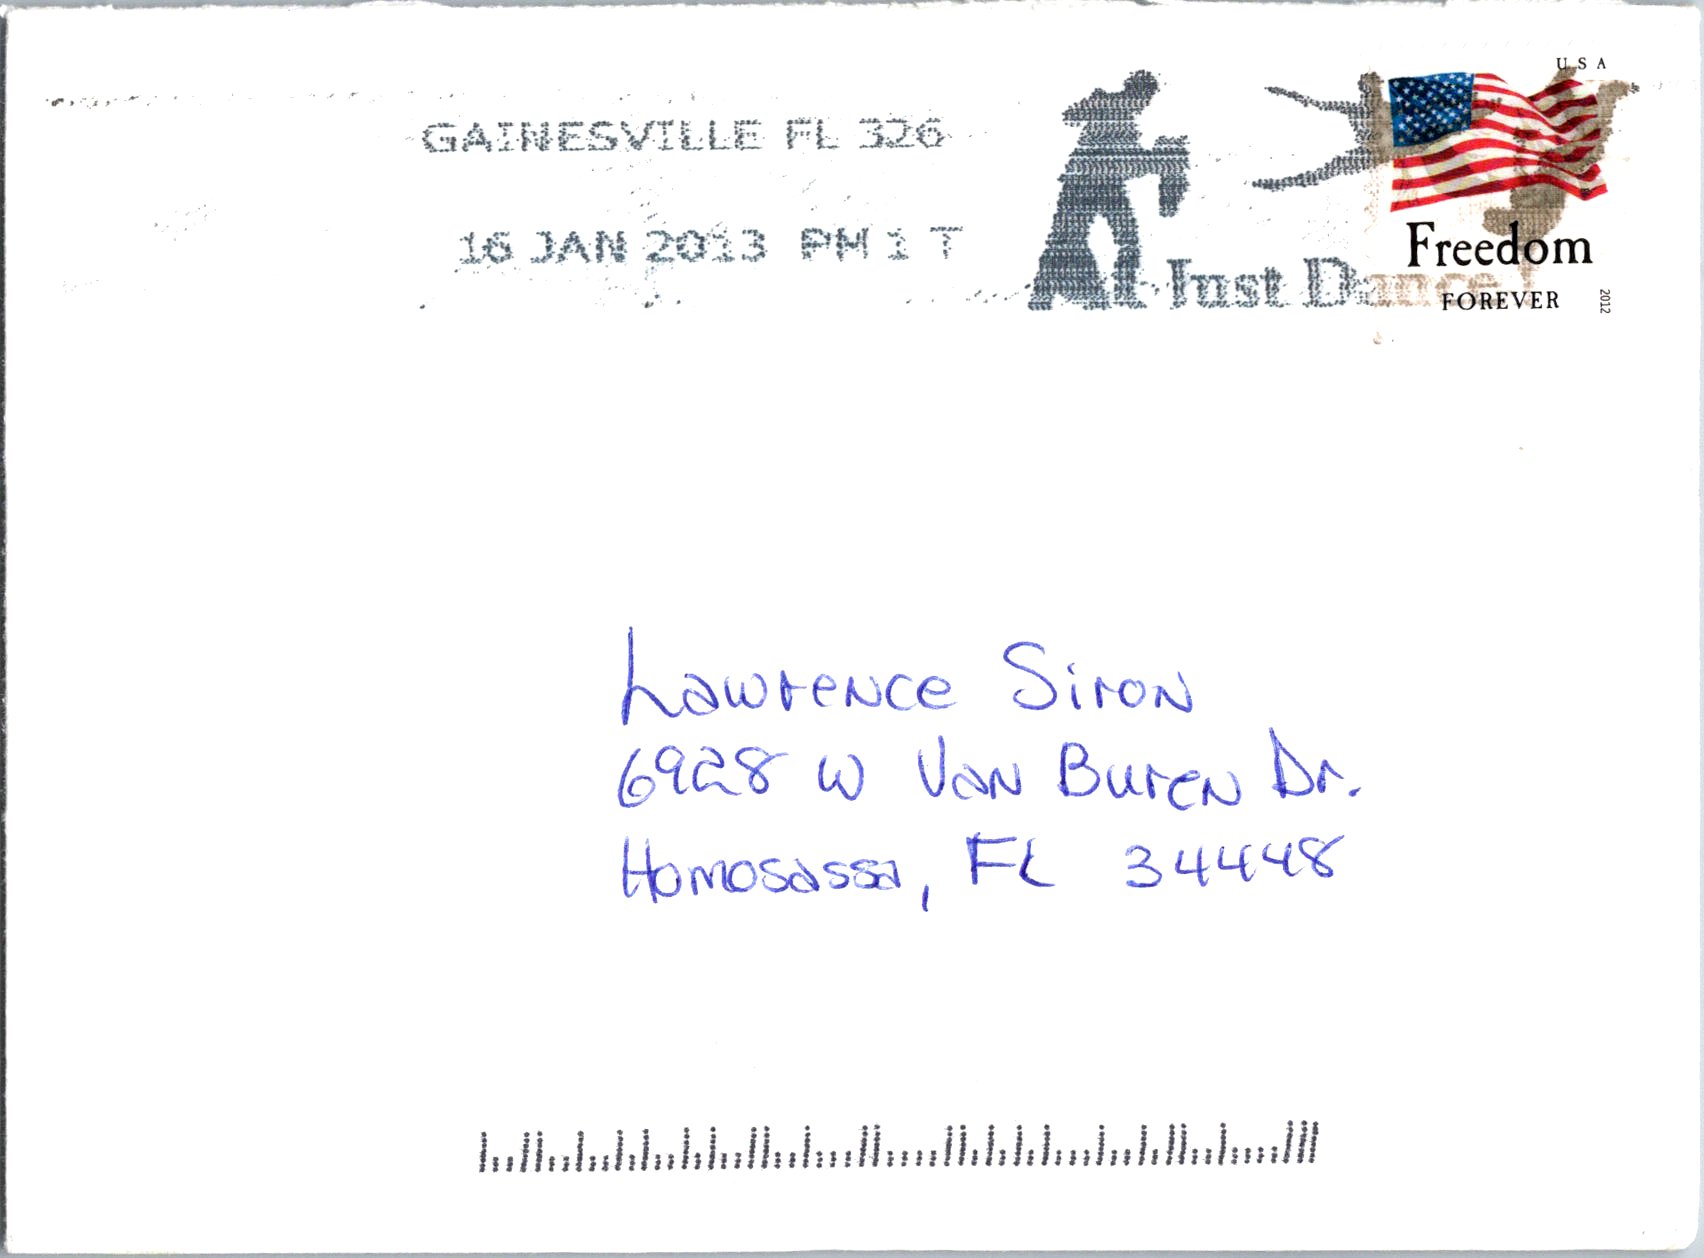 USA
GAINESVILLE FL 326
16 JAN 2013 PM 1 T
Just Dance!
Freedom
FOREVER
2012
Lawrence Siron
6928 W Van Buren Dr.
Homosassa, FL 34448